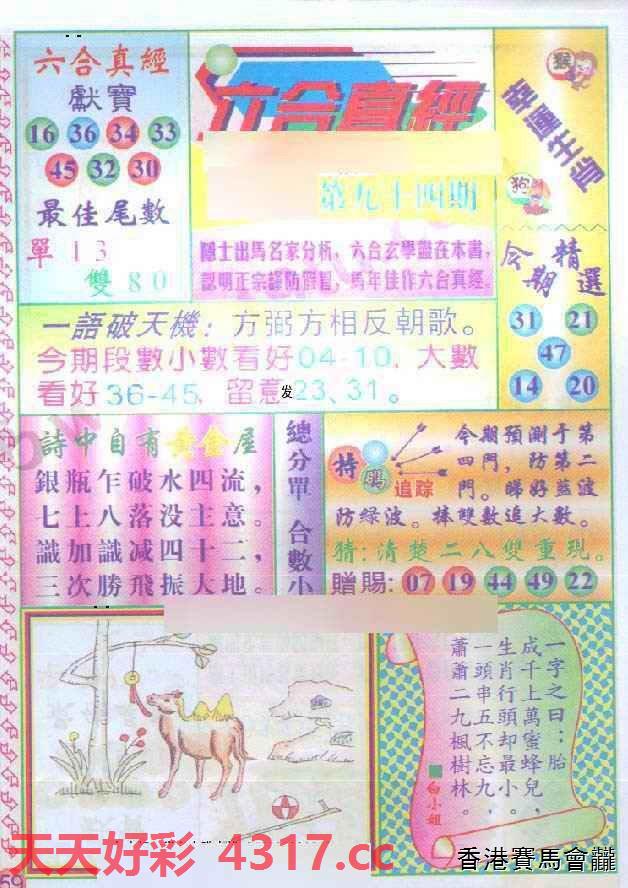 六合真經
獻寶
16 36 34 33
45 32 30
最佳尾數
單 1 3
雙 8 0
六合真經
第九十四期
隱士出馬名家分析，六合玄學盡在本書，
認明正宗謹防假冒，馬年佳作六合真經。
猴
幸運生肖
狗
今期精選
31 21
47
14 20
一語破天機：方弼方相反朝歌。
今期段數小數看好04-10，大數
看好36-45，留意23、31。
发
詩中自有黃金屋
銀瓶乍破水四流，
七上八落没主意。
識加識减四十二，
三次勝飛振大地。
總分單 合數小
特碼
追踪
今期預測于第
四門，防第二
門。睇好藍波
防緑波。捧雙數追大數。
猜：清楚二八雙重現。
贈賜：07 19 44 49 22
一字之曰：胎
成千上萬蜜蜂兒，
生肖行頭却最小。
一頭串五不忘九，
蕭蕭二九楓樹林。
白小姐
天天好彩 4317.cc
香港賽馬會
59